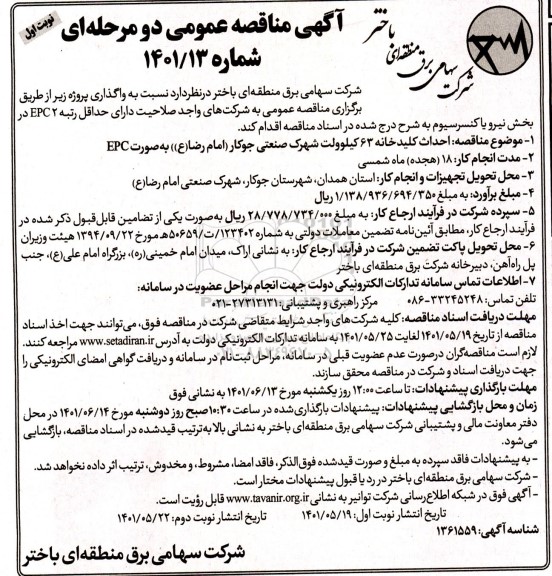 نوبت اول
آگهی مناقصه عمومی دو مرحله‌ای
شماره ۱۴۰۱/۱۳
شرکت سهامی برق منطقه‌ای باختر
شرکت سهامی برق منطقه‌ای باختر درنظردارد نسبت به واگذاری پروژه زیر از طریق
برگزاری مناقصه عمومی به شرکت‌های واجد صلاحیت دارای حداقل رتبه ۲ EPC در
بخش نیرو یا کنسرسیوم به شرح درج شده در اسناد مناقصه اقدام کند.
۱- موضوع مناقصه: احداث کلیدخانه ۶۳ کیلوولت شهرک صنعتی جوکار (امام رضا(ع)) به‌صورت EPC
۲- مدت انجام کار: ۱۸ (هجده) ماه شمسی
۳- محل تحویل تجهیزات و انجام کار: استان همدان، شهرستان جوکار، شهرک صنعتی امام رضا(ع)
۴- مبلغ برآورد: به مبلغ ۱/۱۳۸/۹۳۶/۶۹۴/۳۵۰ ریال
۵- سپرده شرکت در فرآیند ارجاع کار: به مبلغ ۲۸/۷۷۸/۷۳۴/۰۰۰ ریال به‌صورت یکی از تضامین قابل‌قبول ذکر شده در
فرآیند ارجاع کار، مطابق آئین‌نامه تضمین معاملات دولتی به شماره ۱۲۳۴۰۲/ت/۵۰۶۵۹هـ مورخ ۱۳۹۴/۰۹/۲۲ هیئت وزیران
۶- محل تحویل پاکت تضمین شرکت در فرآیند ارجاع کار: به نشانی اراک، میدان امام خمینی(ره)، بزرگراه امام علی(ع)، جنب
پل راه‌آهن، دبیرخانه شرکت برق منطقه‌ای باختر
۷- اطلاعات تماس سامانه تدارکات الکترونیکی دولت جهت انجام مراحل عضویت در سامانه:
تلفن تماس: ۳۳۲۴۵۲۴۸-۰۸۶ مرکز راهبری و پشتیبانی: ۲۷۳۱۳۱۳۱-۰۲۱
مهلت دریافت اسناد مناقصه: کلیه شرکت‌های واجد شرایط متقاضی شرکت در مناقصه فوق، می‌توانند جهت اخذ اسناد
مناقصه از تاریخ ۱۴۰۱/۰۵/۱۹ لغایت ۱۴۰۱/۰۵/۲۵ به سامانه تدارکات الکترونیکی دولت به آدرس www.setadiran.ir مراجعه کنند.
لازم است مناقصه‌گران درصورت عدم عضویت قبلی در سامانه، مراحل ثبت‌نام در سامانه و دریافت گواهی امضای الکترونیکی را
جهت دریافت اسناد و شرکت در مناقصه محقق سازند.
مهلت بارگذاری پیشنهادات: تا ساعت ۱۲:۰۰ روز یکشنبه مورخ ۱۴۰۱/۰۶/۱۳ به نشانی فوق
زمان و محل بازگشایی پیشنهادات: پیشنهادات بارگذاری‌شده در ساعت ۱۰:۳۰ صبح روز دوشنبه مورخ ۱۴۰۱/۰۶/۱۴ در محل
دفتر معاونت مالی و پشتیبانی شرکت سهامی برق منطقه‌ای باختر به نشانی بالا به‌ترتیب قیدشده در اسناد مناقصه، بازگشایی
می‌شود.
- به پیشنهادات فاقد سپرده به مبلغ و صورت قیدشده فوق‌الذکر، فاقد امضا، مشروط، و مخدوش، ترتیب اثر داده نخواهد شد.
- شرکت سهامی برق منطقه‌ای باختر در رد یا قبول پیشنهادات مختار است.
- آگهی فوق در شبکه اطلاع‌رسانی شرکت توانیر به نشانی www.tavanir.org.ir قابل رؤیت است.
تاریخ انتشار نوبت اول: ۱۴۰۱/۰۵/۱۹ تاریخ انتشار نوبت دوم: ۱۴۰۱/۰۵/۲۲
شناسه آگهی: ۱۳۶۱۵۵۹
شرکت سهامی برق منطقه‌ای باختر